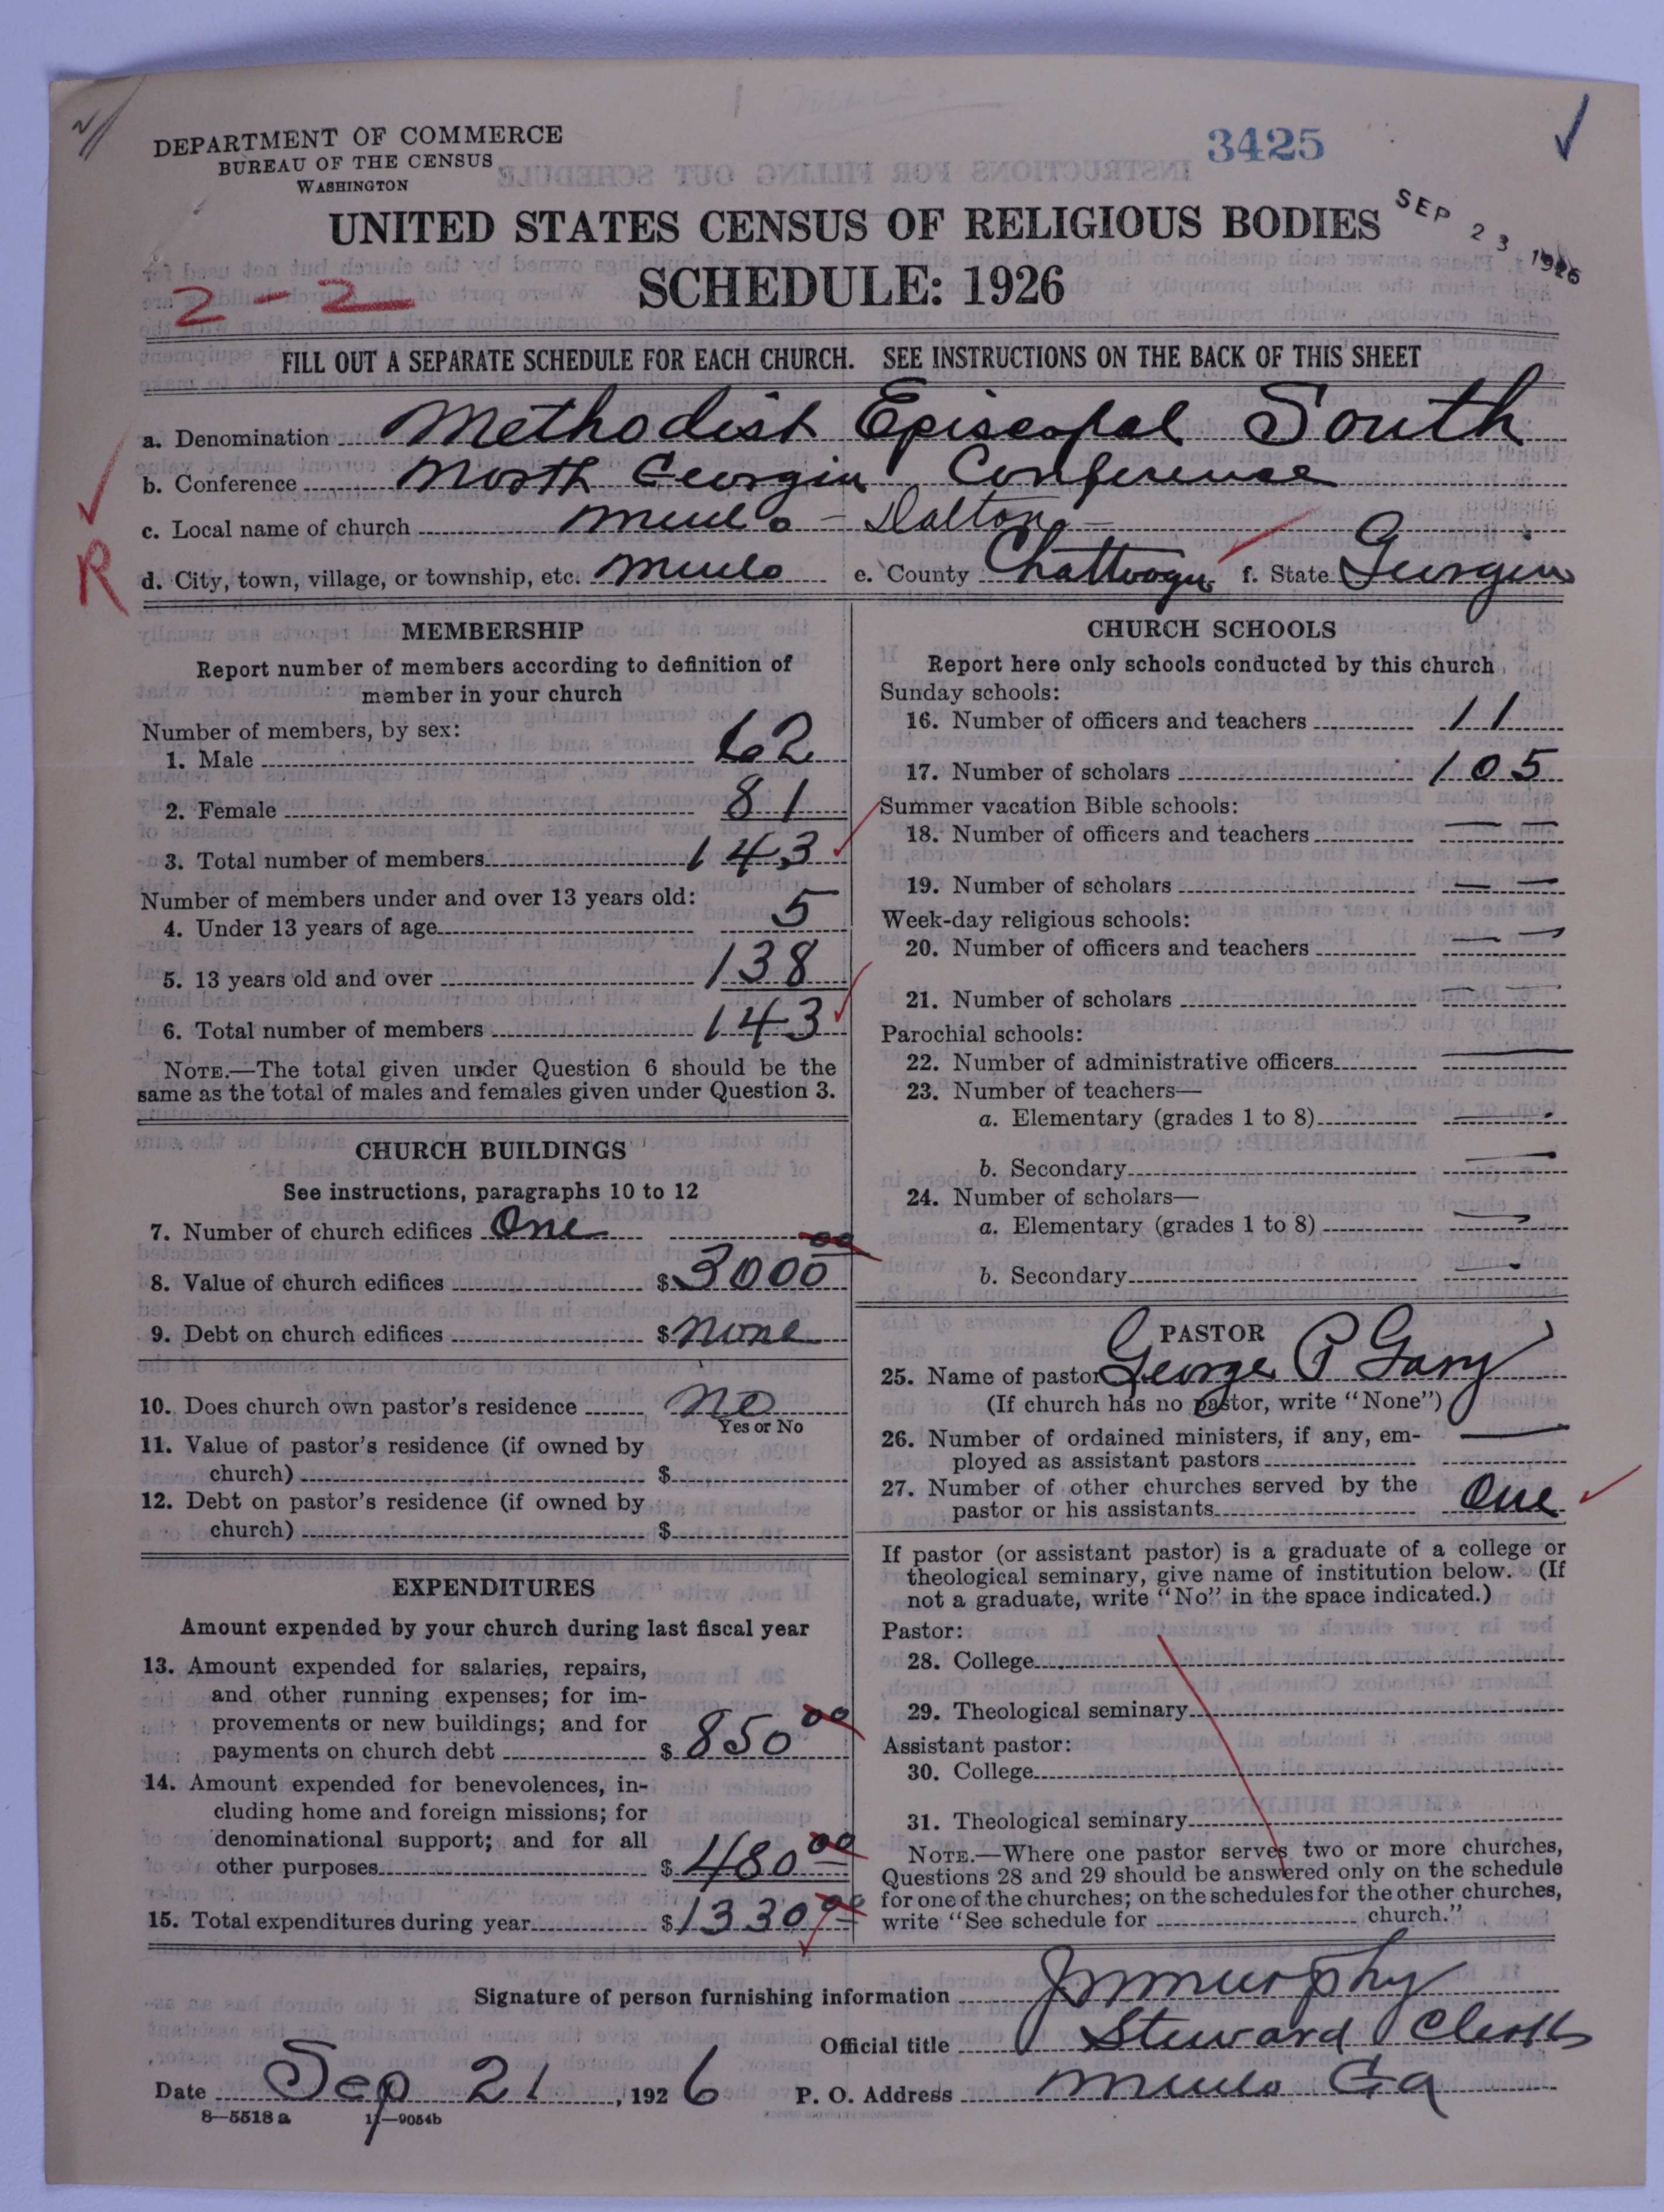 DEPARTMENT OF COMMERCE
BUREAU OF THE CENSUS
WASHINGTON
3425
SEP 23 1926
UNITED STATES CENSUS OF RELIGIOUS BODIES
SCHEDULE: 1926
2-2
FILL OUT A SEPARATE SCHEDULE FOR EACH CHURCH. SEE INSTRUCTIONS ON THE BACK OF THIS SHEET
a. Denomination Methodist Episcopal South
b. Conference North Georgia Conference
c. Local name of church Menlo - Dalton
R
d. City, town, village, or township, etc. Menlo e. County Chattooga f. State Georgia
MEMBERSHIP
Report number of members according to definition of
member in your church
Number of members, by sex:
1. Male 62
2. Female 81
3. Total number of members 143
Number of members under and over 13 years old:
4. Under 13 years of age 5
5. 13 years old and over 138
6. Total number of members 143
NOTE.—The total given under Question 6 should be the
same as the total of males and females given under Question 3.
CHURCH BUILDINGS
See instructions, paragraphs 10 to 12
7. Number of church edifices One
8. Value of church edifices $ 3000 00
9. Debt on church edifices $ none
10. Does church own pastor's residence no
Yes or No
11. Value of pastor's residence (if owned by
church) $
12. Debt on pastor's residence (if owned by
church) $
EXPENDITURES
Amount expended by your church during last fiscal year
13. Amount expended for salaries, repairs,
and other running expenses; for im-
provements or new buildings; and for
payments on church debt $ 850 00
14. Amount expended for benevolences, in-
cluding home and foreign missions; for
denominational support; and for all
other purposes $ 480 00
15. Total expenditures during year $ 1330 00
CHURCH SCHOOLS
Report here only schools conducted by this church
Sunday schools:
16. Number of officers and teachers 11
17. Number of scholars 105
Summer vacation Bible schools:
18. Number of officers and teachers — —
19. Number of scholars — —
Week-day religious schools:
20. Number of officers and teachers — —
21. Number of scholars — —
Parochial schools:
22. Number of administrative officers —
23. Number of teachers—
a. Elementary (grades 1 to 8) —
b. Secondary —
24. Number of scholars—
a. Elementary (grades 1 to 8) —
b. Secondary —
PASTOR
25. Name of pastor George P Gary
(If church has no pastor, write "None")
26. Number of ordained ministers, if any, em-
ployed as assistant pastors —
27. Number of other churches served by the
pastor or his assistants One
If pastor (or assistant pastor) is a graduate of a college or
theological seminary, give name of institution below. (If
not a graduate, write "No" in the space indicated.)
Pastor:
28. College
29. Theological seminary
Assistant pastor:
30. College
31. Theological seminary
NOTE.—Where one pastor serves two or more churches,
Questions 28 and 29 should be answered only on the schedule
for one of the churches; on the schedules for the other churches,
write "See schedule for church."
Signature of person furnishing information J M Murphy
Official title Steward Clerk
Date Sep 21, 1926 P. O. Address Menlo Ga
8—5518 a 11—9054b